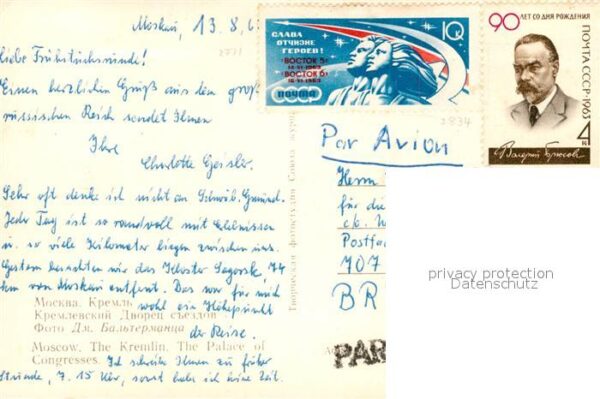 Moskau, 13.8.6
2771
Liebe Frühstücksrunde!
Einen herzlichen Gruß aus dem groß
russischen Reich sendet Ihnen
Ihre
Charlotte Geisler.
Sehr oft denke ich nicht an Schwäb. Gmünd.
Jeder Tag ist so randvoll mit Erlebnissen
u. so viele Kilometer liegen zwischen uns.
Gestern besuchten wir das Kloster Sagorsk, 74
km von Moskau entfernt. Das war für mich
wohl ein Höhepunkt
der Reise.
Ich schreibe Ihnen zu früher
Stunde, 7.15 Uhr, sonst habe ich keine Zeit.
Москва. Кремль
Кремлевский Дворец съездов
Фото Дм. Бальтерманца
Moscow. The Kremlin. The Palace of
Congresses.
Творческая фотостудия Союза журн
СЛАВА
ОТЧИЗНЕ
ГЕРОЕВ!
"ВОСТОК 5"
14-VI-1963
"ВОСТОК 6"
16-VI-1963
ПОЧТА
СССР
10к
90 ЛЕТ СО ДНЯ РОЖДЕНИЯ
ПОЧТА СССР·1963
4к
Валерий Брюсов
2834
Par Avion
Herrn
für die
Postfa
707
BR
PAR
privacy protection
Datenschutz